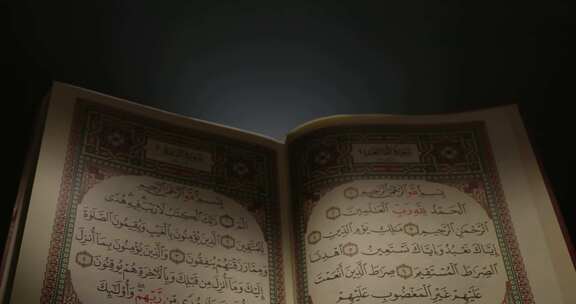 بِسْمِ ٱللَّهِ ٱلرَّحْمَٰنِ ٱلرَّحِيمِ
ٱلْحَمْدُ لِلَّهِ رَبِّ ٱلْعَٰلَمِينَ
ٱلرَّحْمَٰنِ ٱلرَّحِيمِ مَٰلِكِ يَوْمِ ٱلدِّينِ
إِيَّاكَ نَعْبُدُ وَإِيَّاكَ نَسْتَعِينُ ٱهْدِنَا
ٱلصِّرَٰطَ ٱلْمُسْتَقِيمَ صِرَٰطَ ٱلَّذِينَ أَنْعَمْتَ
عَلَيْهِمْ غَيْرِ ٱلْمَغْضُوبِ عَلَيْهِمْ
بِسْمِ ٱللَّهِ ٱلرَّحْمَٰنِ ٱلرَّحِيمِ
الٓمٓ ذَٰلِكَ ٱلْكِتَٰبُ لَا رَيْبَ فِيهِ هُدًى
لِّلْمُتَّقِينَ ٱلَّذِينَ يُؤْمِنُونَ بِٱلْغَيْبِ وَيُقِيمُونَ ٱلصَّلَوٰةَ
وَمِمَّا رَزَقْنَٰهُمْ يُنفِقُونَ وَٱلَّذِينَ يُؤْمِنُونَ بِمَآ أُنزِلَ
إِلَيْكَ وَمَآ أُنزِلَ مِن قَبْلِكَ وَبِٱلْءَاخِرَةِ هُمْ يُوقِنُونَ
مِّن رَّبِّهِمْ وَأُو۟لَٰٓئِكَ